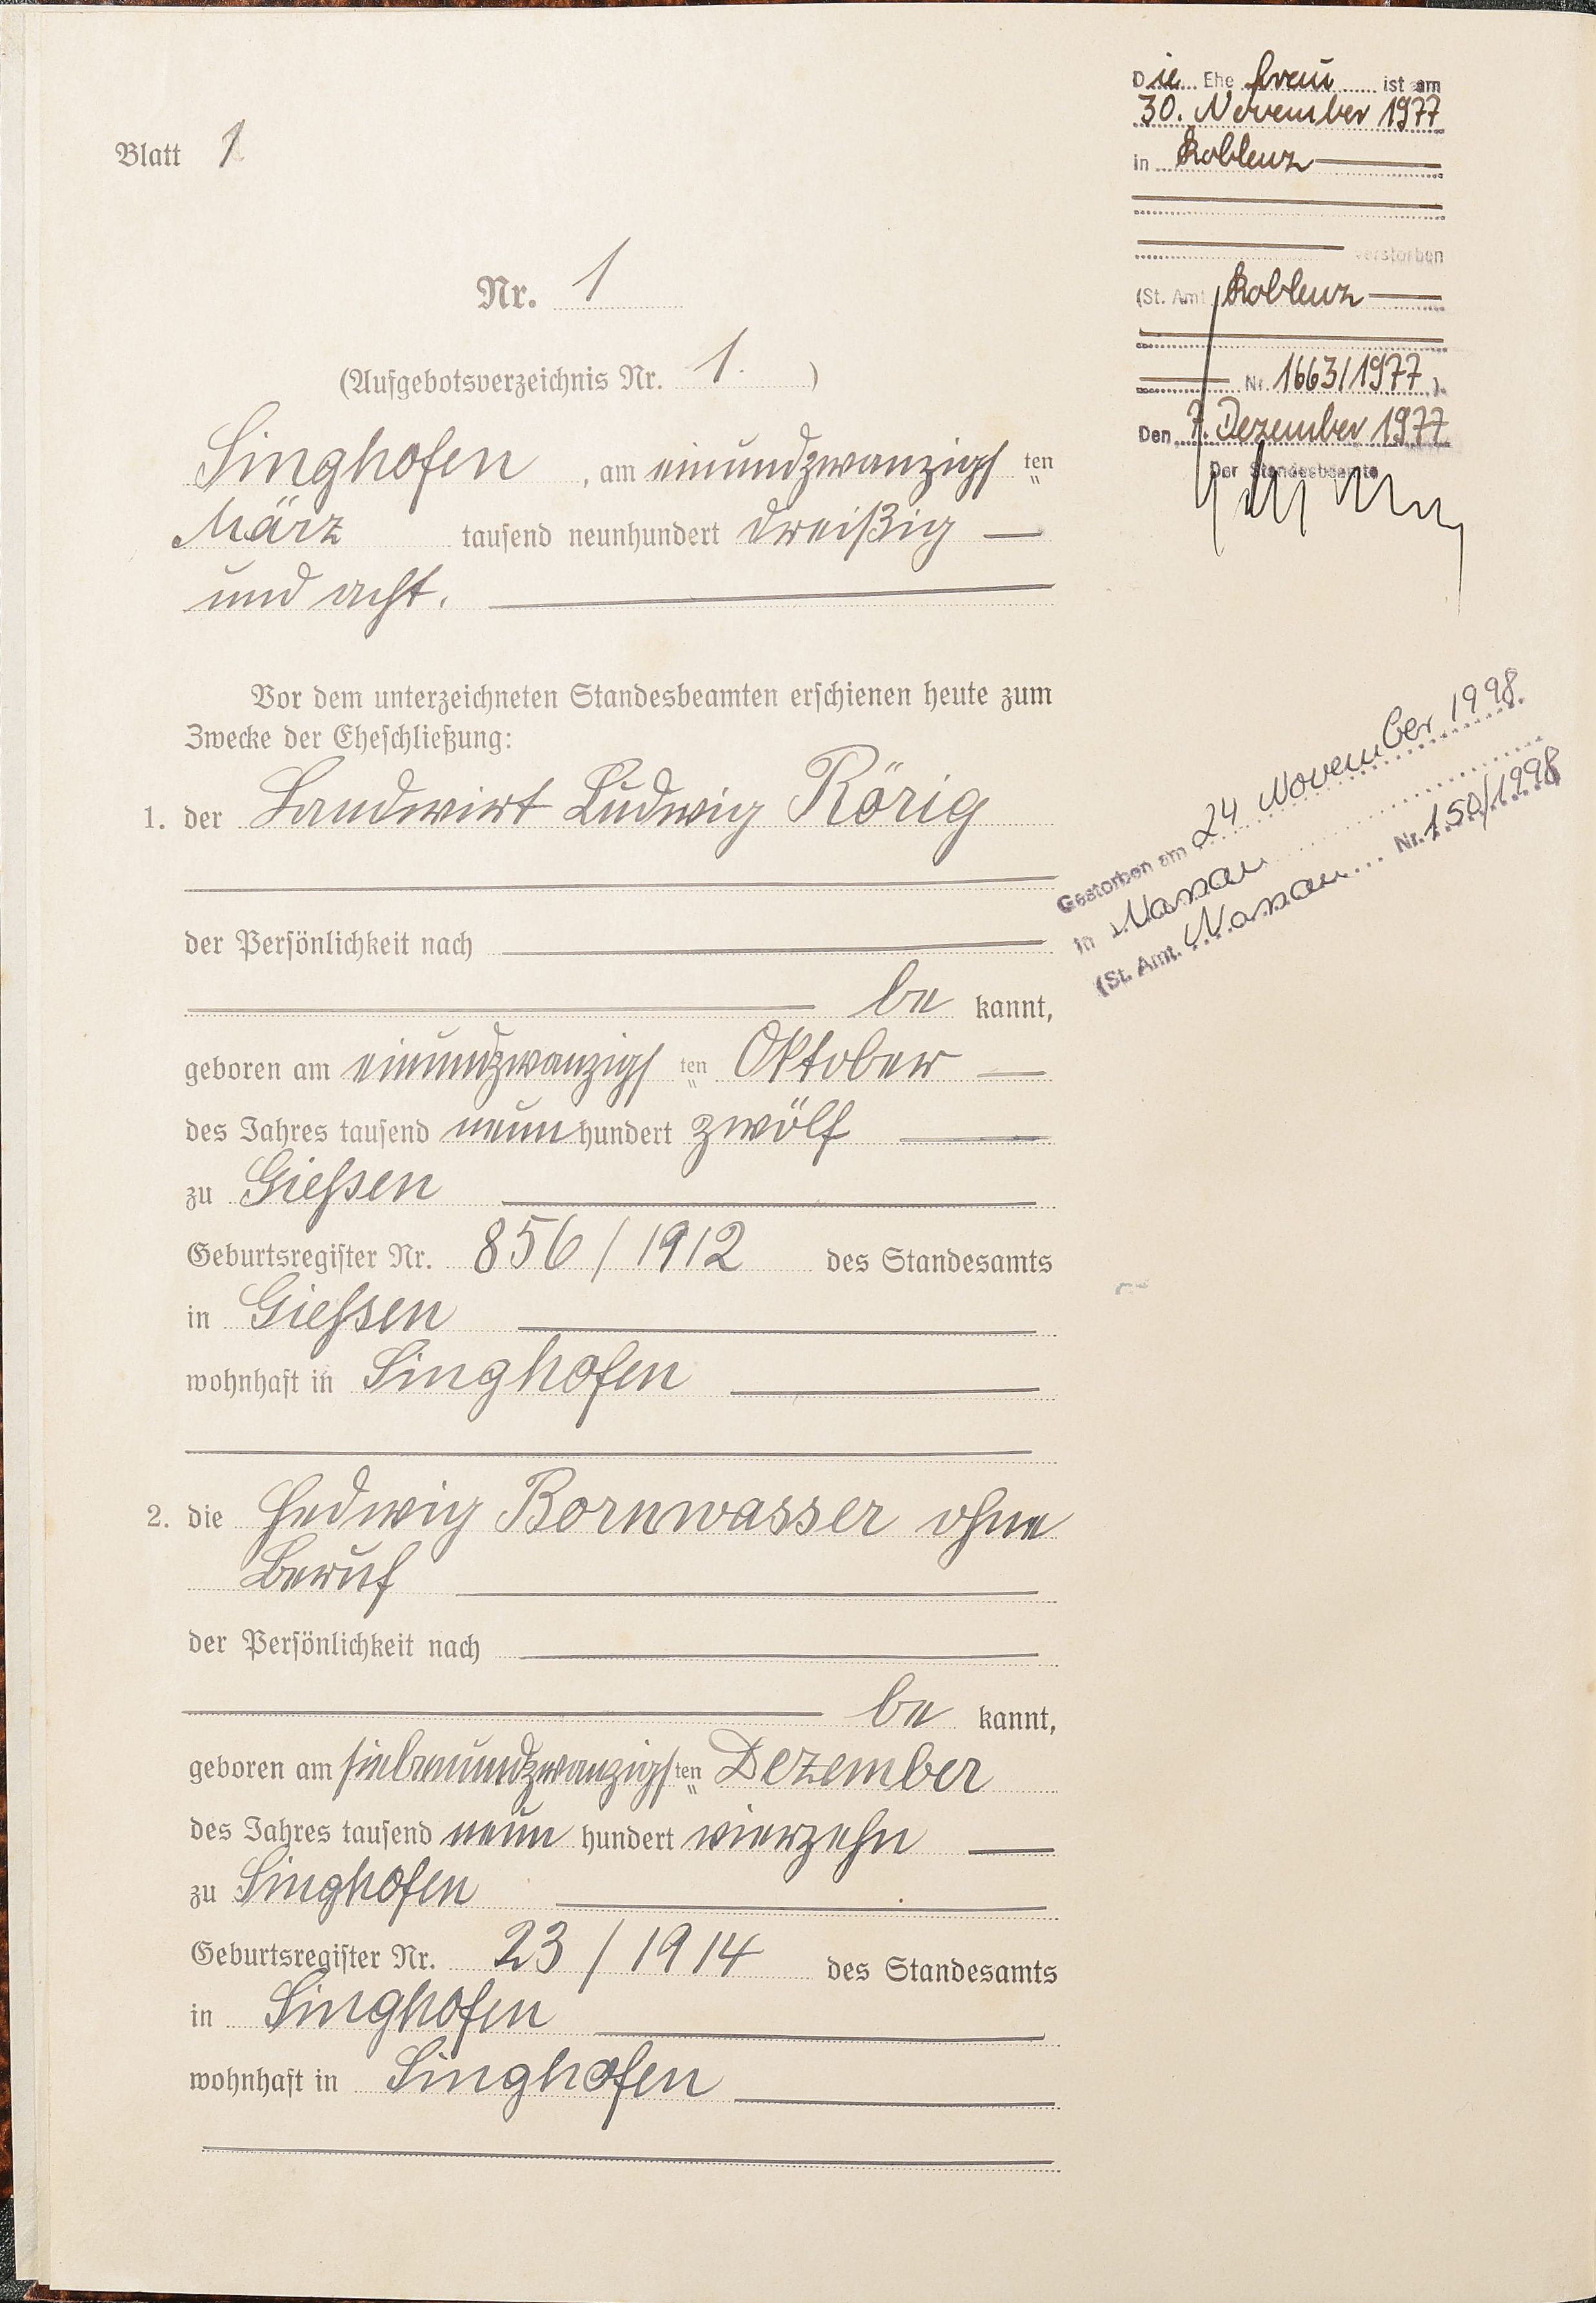 Blatt 1
Nr. 1
(Aufgebotsverzeichnis Nr. 1. )
Singhofen, am einundzwanzigsten
März tausend neunhundert dreißig
und acht.
Vor dem unterzeichneten Standesbeamten erschienen heute zum
Zwecke der Eheschließung:
1. der Landwirt Ludwig Rörig
der Persönlichkeit nach
be kannt,
geboren am einundzwanzigsten Oktober
des Jahres tausend neun hundert zwölf
zu Giessen
Geburtsregister Nr. 856/1912 des Standesamts
in Giessen
wohnhaft in Singhofen
2. die Hedwig Bornwasser ohne
Beruf
der Persönlichkeit nach
be kannt,
geboren am siebenundzwanzigsten Dezember
des Jahres tausend neun hundert vierzehn
zu Singhofen
Geburtsregister Nr. 23/1914 des Standesamts
in Singhofen
wohnhaft in Singhofen
Die Ehefrau ist am
30. November 1977
in Koblenz
verstorben
(St. Amt Koblenz
Nr. 1663/1977 ).
Den 7. Dezember 1977
Der Standesbeamte
Gestorben am 24 November 1998
in Nassau
(St. Amt. Nassau Nr. 150/1998